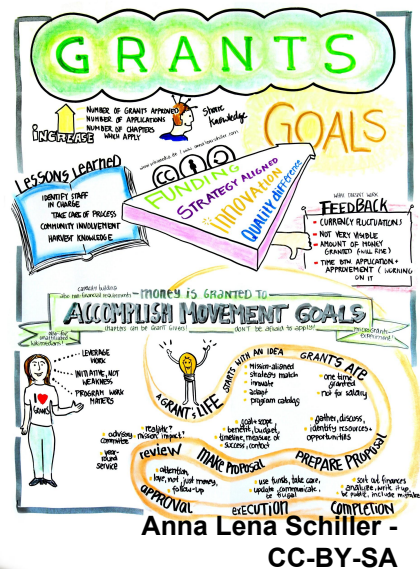 GRANTS
NUMBER OF GRANTS APPROVED
NUMBER OF APPLICATIONS
NUMBER OF CHAPTERS
WHICH APPLY
INCREASE
Share
Knowledge
GOALS
LESSONS LEARNED
IDENTIFY STAFF
IN CHARGE
TAKE CARE OF PROCESS
COMMUNITY INVOLVEMENT
HARVEST KNOWLEDGE
FUNDING
STRATEGY ALIGNED
INNOVATION
QUALITY difference
WHAT DOESN'T WORK
FEEDBACK
- CURRENCY FLUCTUATIONS
- NOT VERY VISIBLE
- AMOUNT OF MONEY
GRANTED (WILL RISE)
- TIME BTW. APPLICATION +
APPROVEMENT (WORKING
ON IT
capacity building
also non-financial requirements
MONEY IS GRANTED TO
ACCOMPLISH MOVEMENT GOALS
chapters can be grant givers!
DON'T be afraid to apply!
microgrants
experiment!
LEVERAGE
WORK
INITIATIVE, NOT
WEAKNESS
PROGRAM WORK
MATTERS
I ♥
GRANTS
A GRANT'S LIFE
STARTS WITH AN IDEA
mission-aligned
strategy match
innovate
adapt
program catalog
GRANTS ARE
one time
granted
not for salary
gather, discuss,
identify resources +
opportunities
PREPARE PROPOSAL
goal + scope
benefit, budget,
timeline, measure of
success, contact
MAKE PROPOSAL
realistic?
mission impact?
advisory
committee
year-
round
service
review
attention,
love, not just money,
follow-up
APPROVAL
use funds, take care,
update, communicate,
be frugal
EXECUTION
sort out finances
analyze, write it up,
be public, include mistakes
COMPLETION
Anna Lena Schiller -
CC-BY-SA